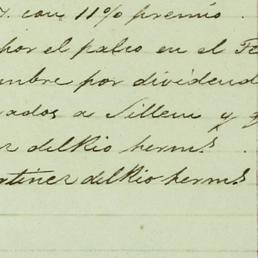 con 11% premio
por el palco en el
por dividend
a Sillem y
del Rio herms
del Rio herms